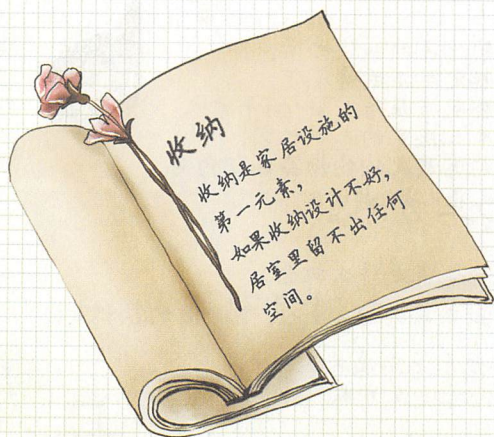 收纳
收纳是家居设施的
第一元素，
如果收纳设计不好，
居室里留不出任何
空间。